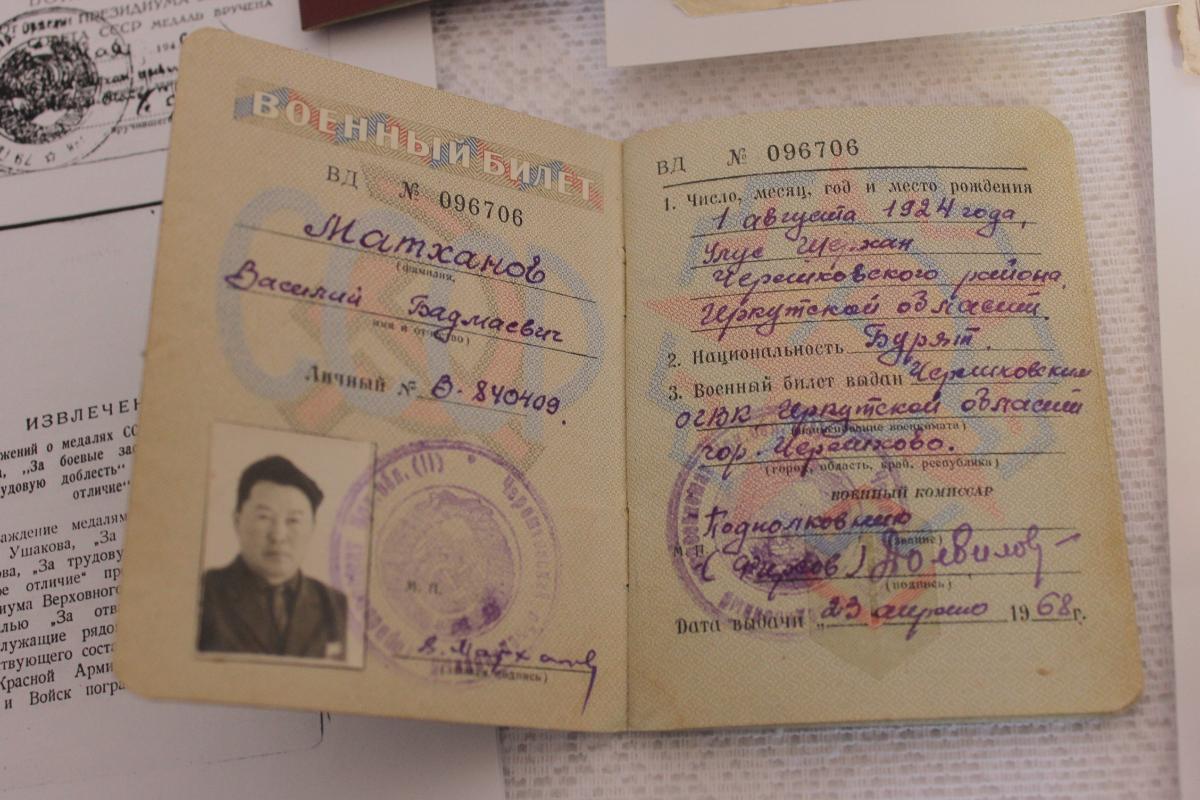 ПРЕЗИДИУМА
СССР МЕДАЛЬ ВРУЧЕНА
194
ИЗВЛЕЧЕН
жений о медалях СС
„За боевые зас
удовую доблесть“
отличие“
аждение медалям
Ушакова, „За
ова, „За трудову
ое отличие“ пр
иума Верховного
лью „За отв
служащие рядо
ствующего соста
Красной Арми
и Войск погра
ВОЕННЫЙ БИЛЕТ
ВД № 096706
Матханов
(фамилия,
Василий Бадмаевич
имя и отчество)
Личный № В-840409.
М. П.
В. Матханов
подпись)
ВД № 096706
1. Число, месяц, год и место рождения
1 августа 1924 года,
Улус
Черемховского района,
Иркутской области.
2. Национальность Бурят.
3. Военный билет выдан Черемховским
ОГВК Иркутской области
(наименование военкомата)
гор. Черемхово.
(город, область, край, республика)
ВОЕННЫЙ КОМИССАР
Подполковник
(звание)
М. П.
(подпись)
Дата выдачи „23 апреля 1968 г.